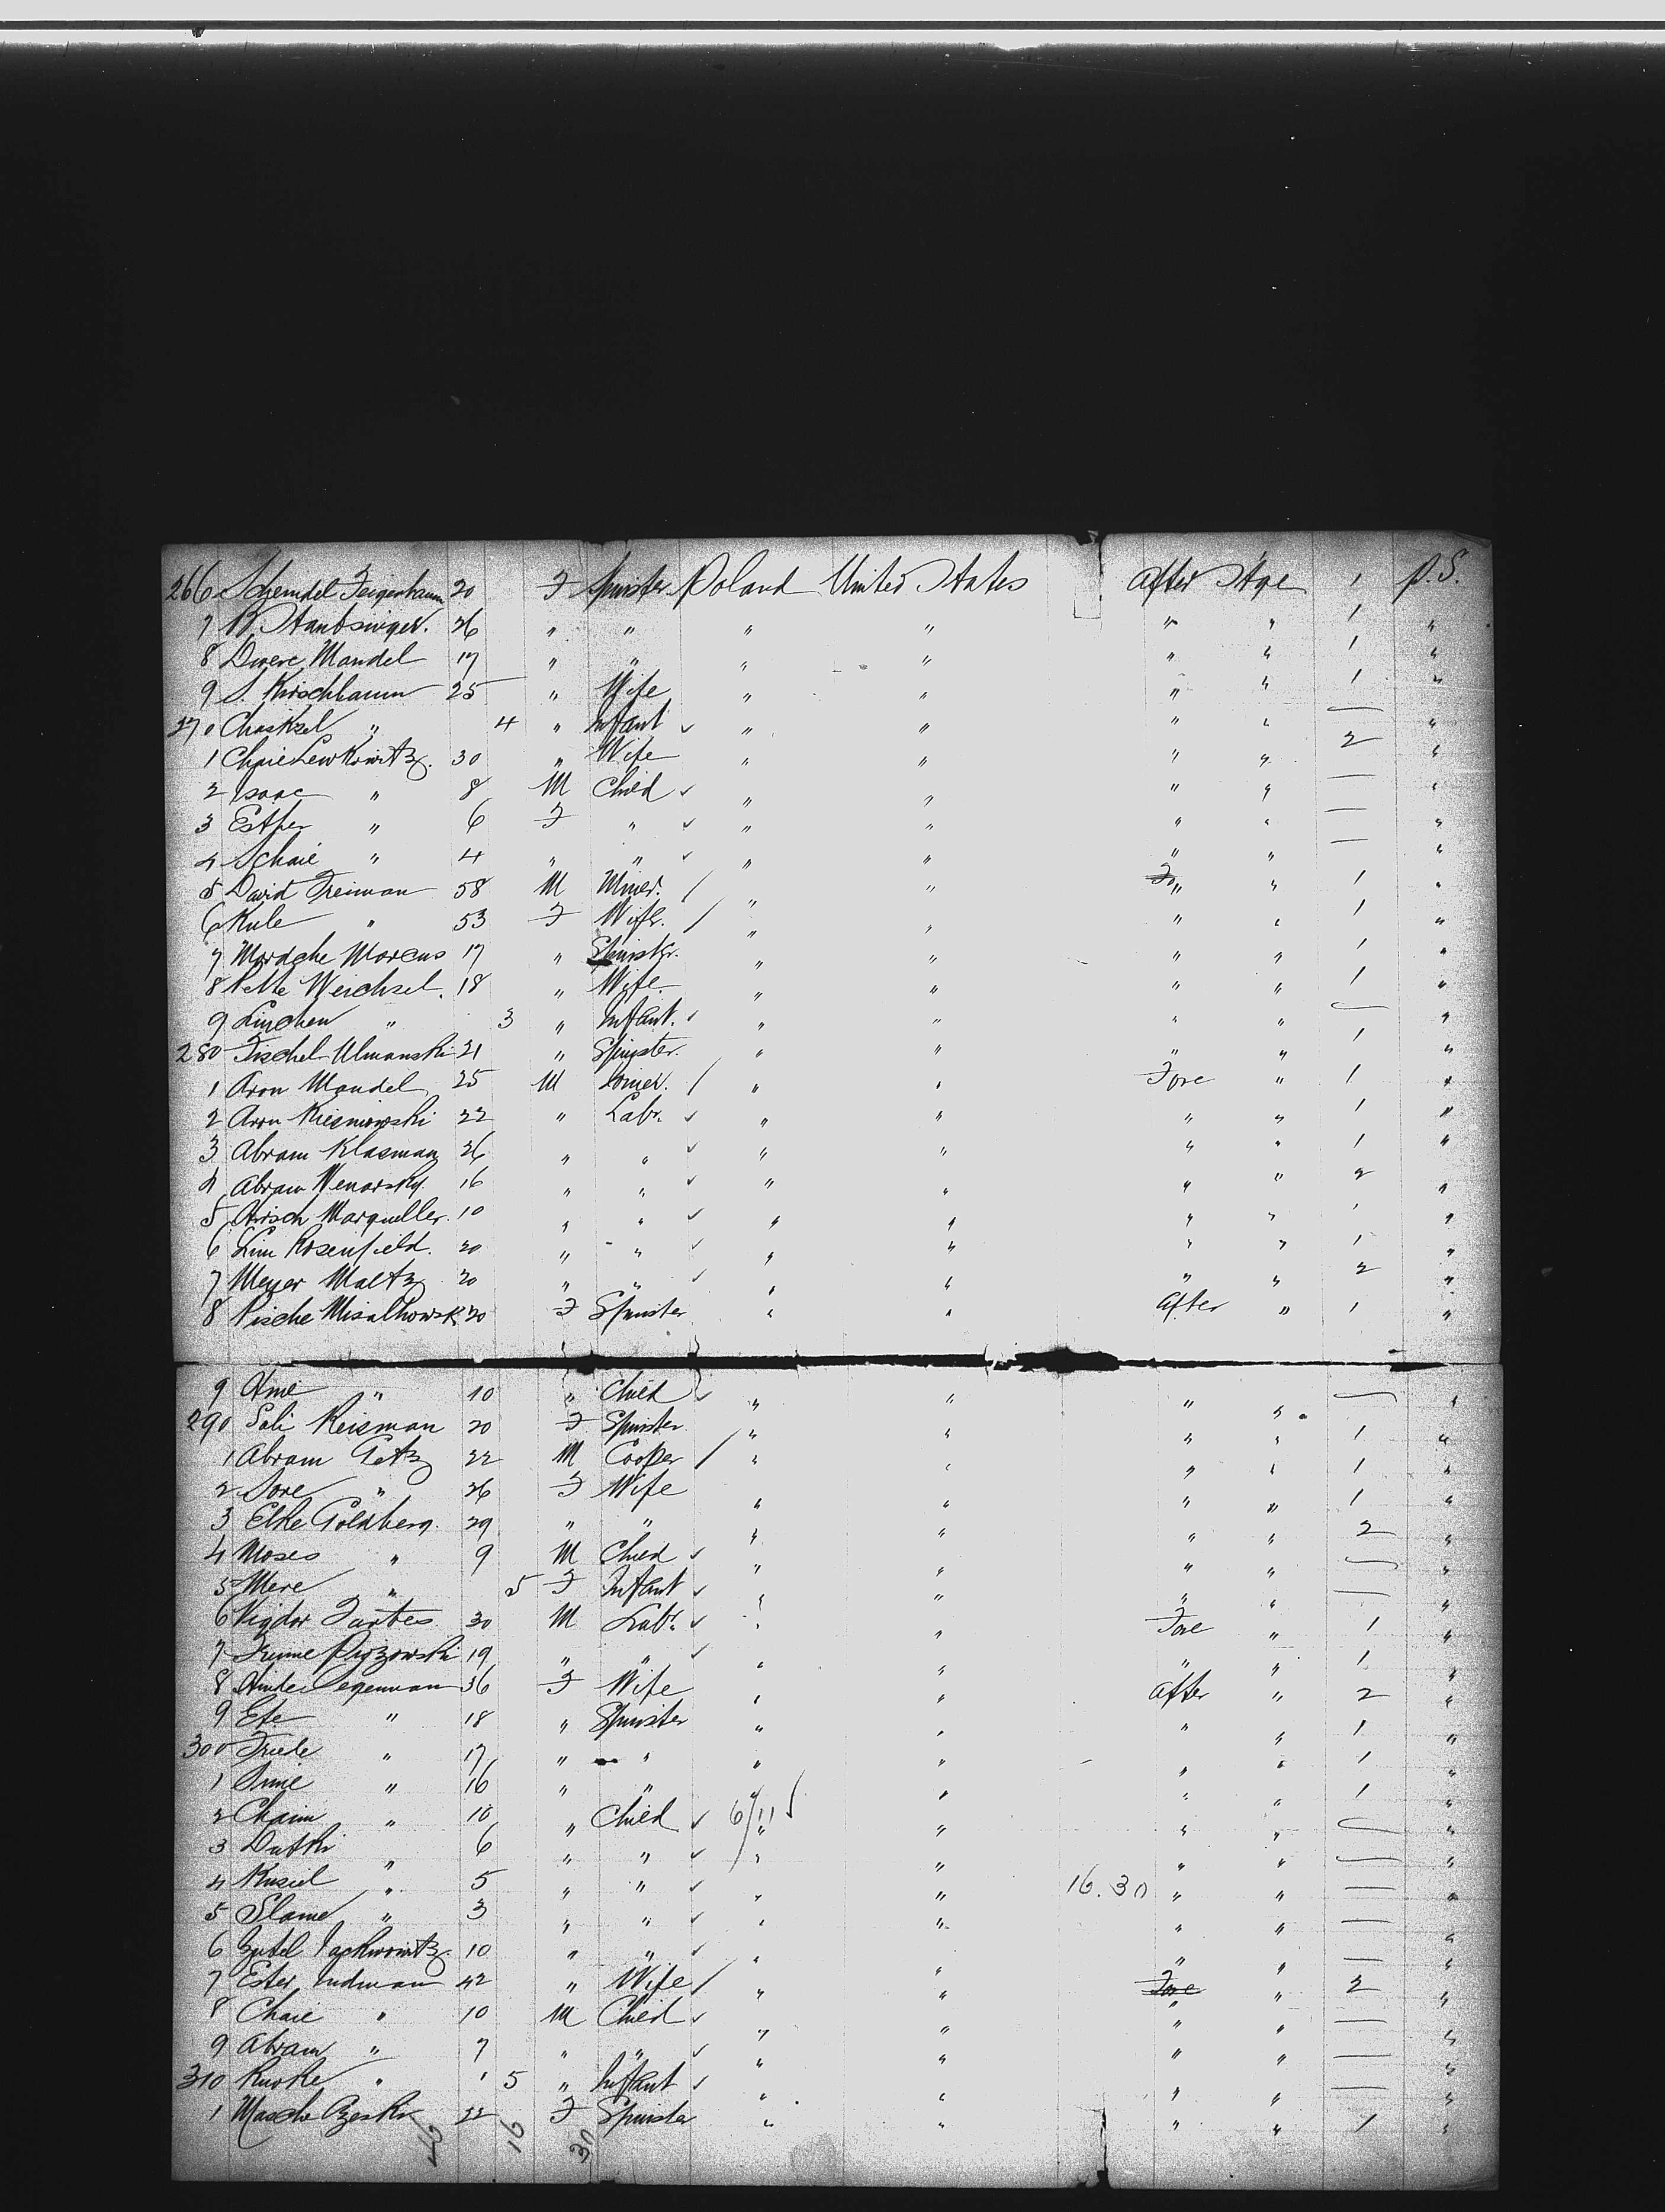 266 Schemdel Feigenbaum 20 F Spinster Poland United States After Stge 1 P.S.
7 B. Stantsinger. 26 " " " " " " 1 "
8 Dwere Mandel 17 " " " " " " 1 "
9 S. Kirschbaum 25 " Wife " " " " 1 "
270 Chaskel " 4 " Infant ✓ " " " " — "
1 Chaie Lewkowitz. 30 " Wife " " " " 2 "
2 Isaac " 8 M Child ✓ " " " " — "
3 Esther " 6 F " ✓ " " " " — "
4 Schaie " 4 " " ✓ " " " " — "
5 David Freiman 58 M Miner. / " " " " 1 "
6 Rule " 53 F Wife. / " " " " 1 "
7 Mordche Marcus 17 " Spinster. " " " " 1 "
8 Pette Weichsel. 18 " Wife. " " " " 1 "
9 Linchen " 3 " Infant. ✓ " " " " — "
280 Fischel Ulmanski 21 " Spinster. " " " " 1 "
1 Aron Mandel 25 M Joiner. / " " Fore " 1 "
2 Aron 22 " Labr. ✓ " " " " 1 "
3 Abram Klasman 26 " " ✓ " " " " 1 "
4 Abram Wenarsky. 16 " " ✓ " " " " 2 "
5 Hirsch Marqueller. 10 " " ✓ " " " " ' "
6 Lim Rosenfield. 20 " " ✓ " " " " 1 "
7 Meyer Maltz 20 " " ✓ " " " " 2 "
8 Pische Misalkowsk 20 F Spinster " " After " 1 "
9 " 10 " Child ✓ " " " " — "
290 Sali Reisman 20 F Spinster. " " " " 1 "
1 Abram Getz 22 M Cooper / " " " " 1 "
2 Sore " 26 F Wife " " " " 1 "
3 Elke Goldberg. 29 " " " " " " 2 "
4 Moses " 9 M Child ✓ " " " " — "
5 Mere " 5 F Infant ✓ " " " " — "
6 Vigdor Farbes 30 M Labr. ✓ " " Fore " 1 "
7 19 " " ✓ " " " " 1 "
8 Hinde Segenman 36 F Wife " " After " 2 "
9 Ete " 18 " Spinster " " " " 1 "
300 Friede " 17 " " " " " " 1 "
1 Simie " 16 " " " " " " 1 "
2 Chaim " 10 " Child ✓ 6/11 " " " " — "
3 Dutki " 6 " " ✓ " " " " — "
4 Kusiel " 5 " " ✓ " " 16.30 " " — "
5 Slame " 3 " " ✓ " " " " — "
6 10 " " ✓ " " " " — "
7 Ester Indman 42 " Wife / " " Fore " 2 "
8 Chaie " 10 M Child ✓ " " " " — "
9 Abram " 7 " " ✓ " " " " — "
310 " 1 5 " Infant ✓ " " " " — "
1 Masche 22 F Spinster " " " " 1 "
46 16 30